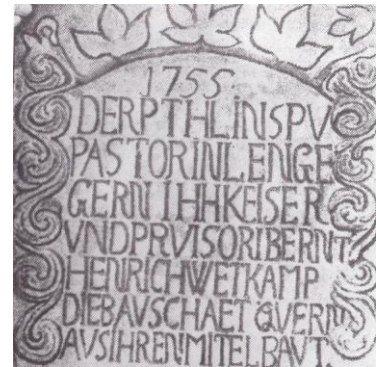 1755
DERPTHLINSPV
PASTORINLENGE
GERN IHHKEISER
VNDPRVISORIBERNT
HENRICHWETKAMP
DIEBAVSCHAET QVERN
AVSIHRENMITELBAVT.